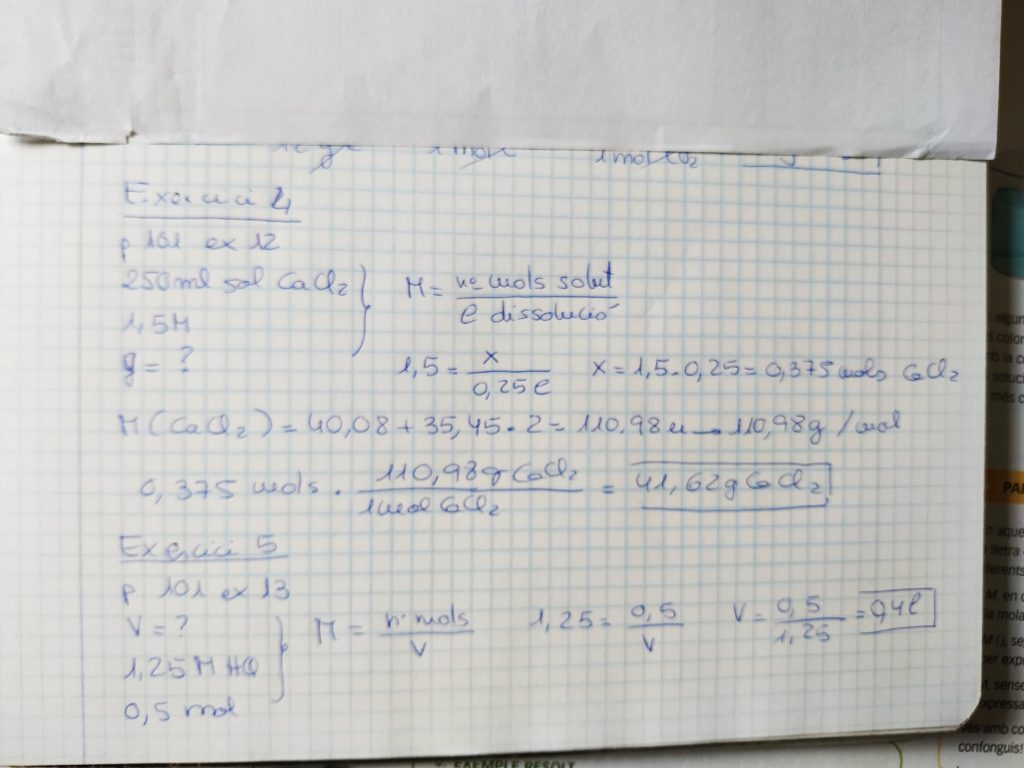 1molCO₂
Exercici 4
p 101 ex 12
250ml sol CaCl₂
1,5M
g = ?
M = nº mols solut / l dissolució
1,5 = x / 0,25l x = 1,5 · 0,25 = 0,375 mols CaCl₂
M(CaCl₂) = 40,08 + 35,45 · 2 = 110.98 u → 110,98g/mol
0,375 mols · 110,98g CaCl₂ / 1mol CaCl₂ = 41,62g CaCl₂
Exercici 5
p 101 ex 13
V = ?
1,25 M HCl
0,5 mol
M = nº mols / V 1,25 = 0,5 / V V = 0,5 / 1,25 = 0,4l
algun
colo
soluc
més c
PA
aque
lletra
ferents
M, en
la mola
M (), se
per exp
M, sense
expressa
Nés amb co
confonguis!
EXEMPLE RESOLT